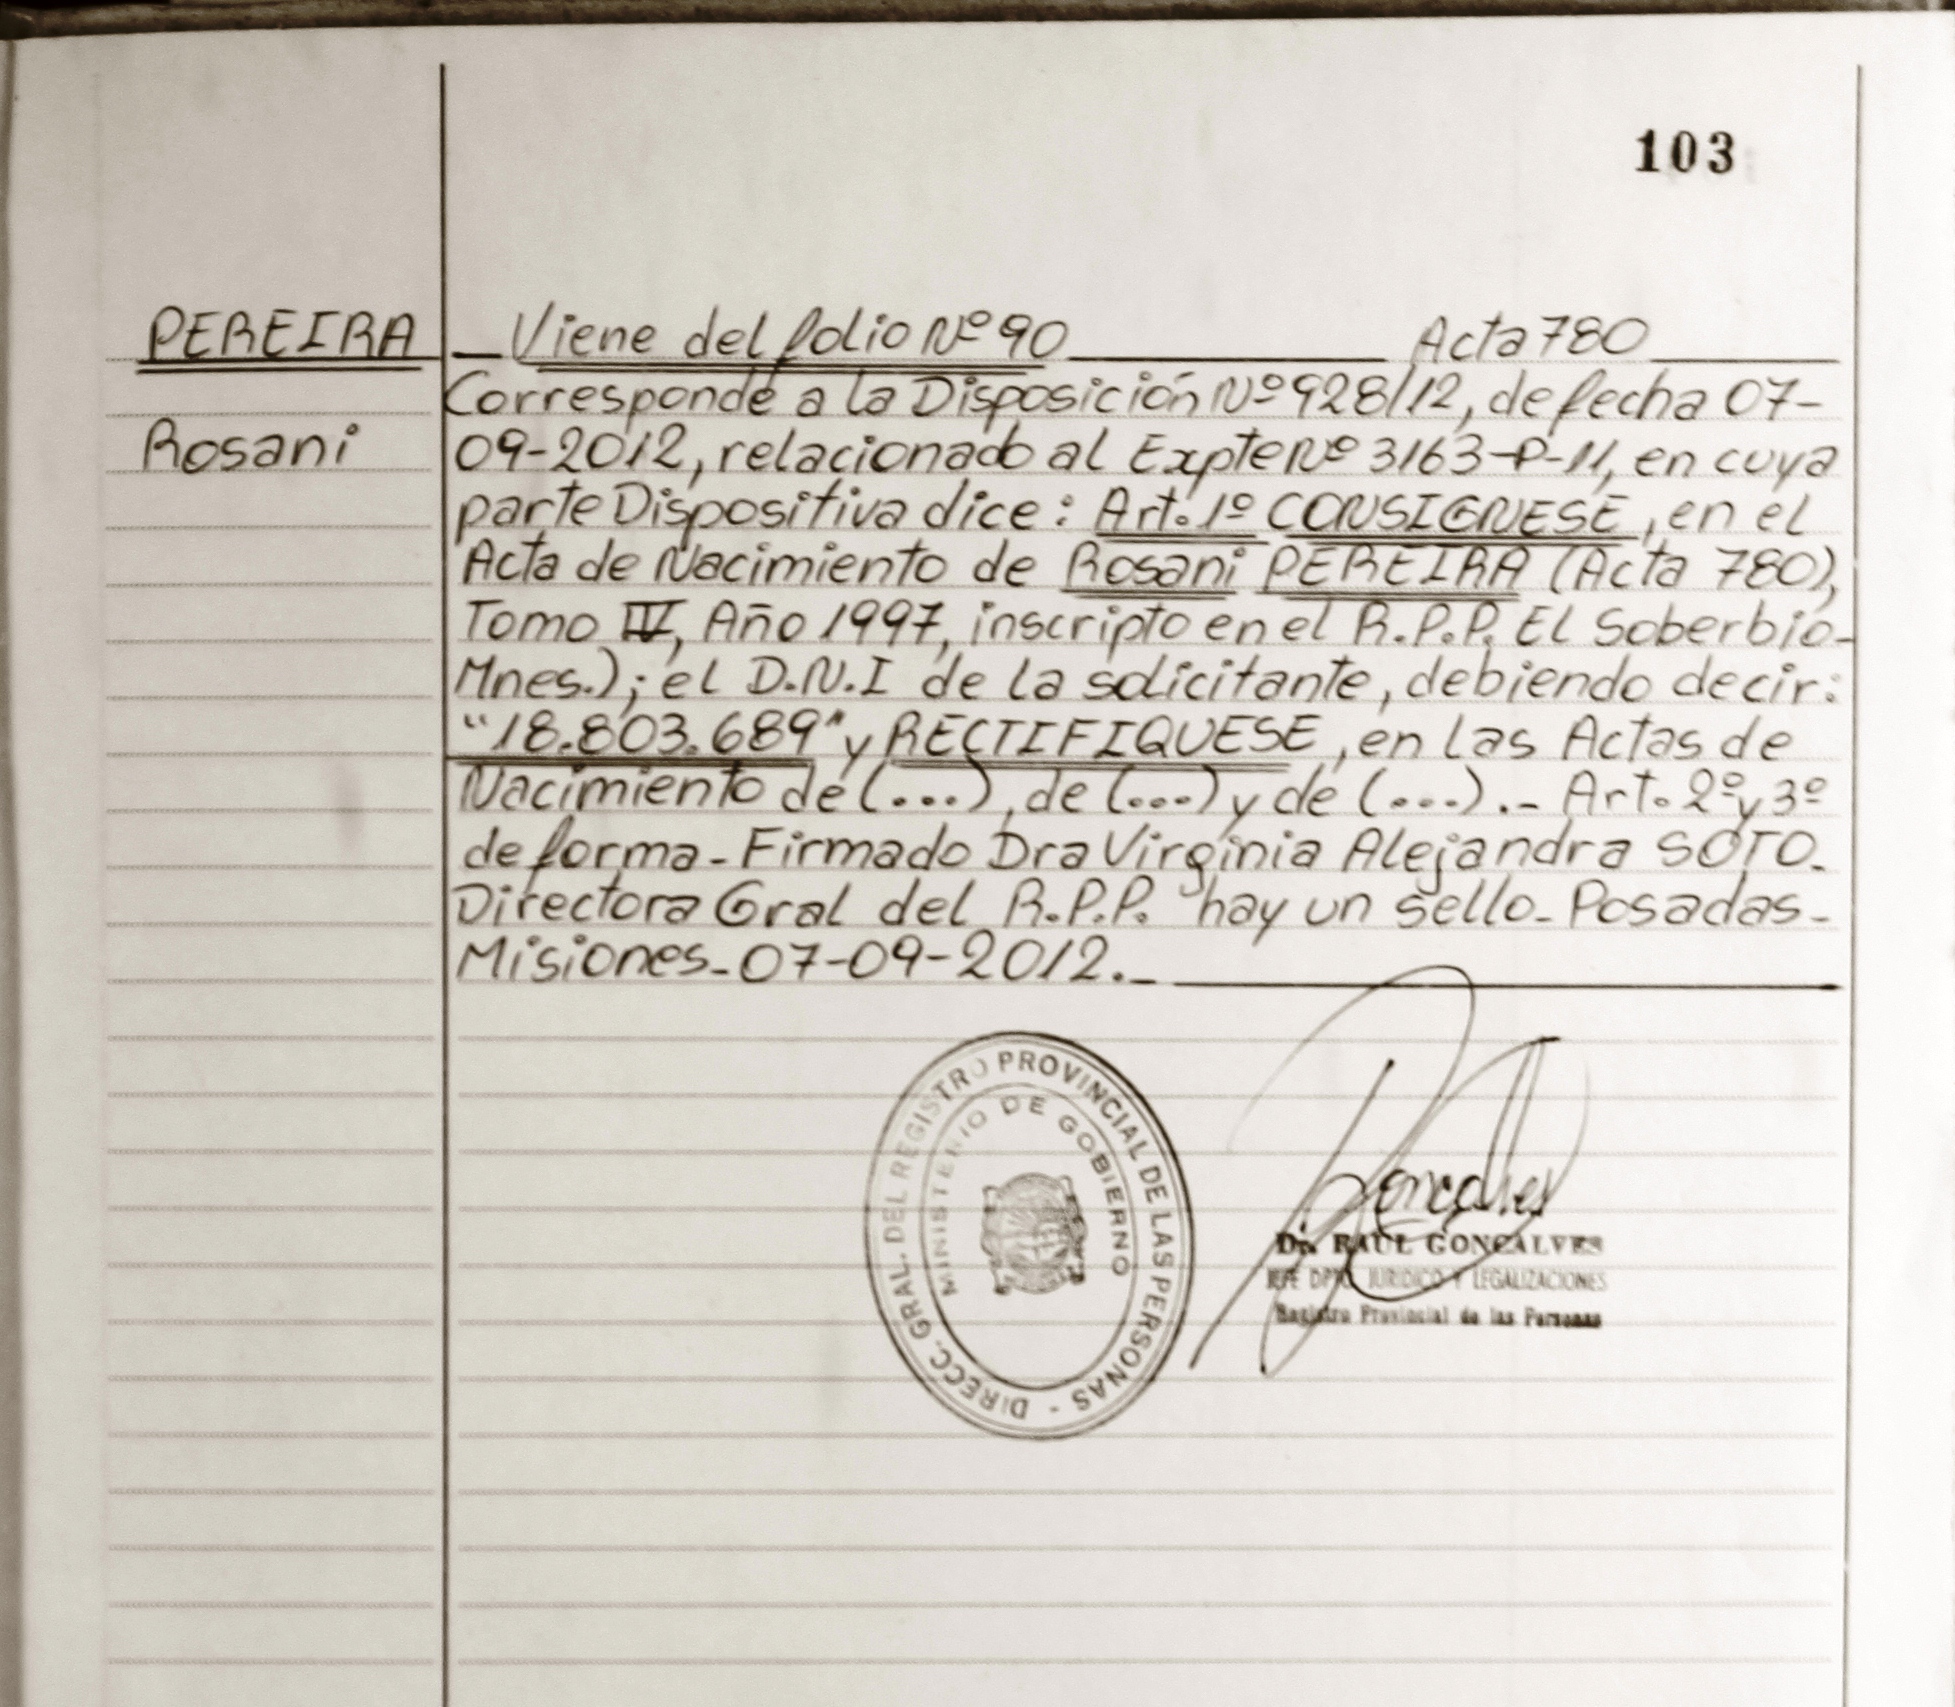 103
PEREIRA
Rosani
Viene del folio Nº 90 Acta 780
Corresponde a la Disposición Nº 928/12, de fecha 07-
09-2012, relacionado al Expte Nº 3163-P-11, en cuya
parte Dispositiva dice: Art. 1º CONSIGNESE, en el
Acta de Nacimiento de Rosani PEREIRA (Acta 780),
Tomo IV, Año 1997, inscripto en el R.P.P. El Soberbio-
Mnes.); el D.N.I de la solicitante, debiendo decir:
"18.803.689" y RECTIFIQUESE, en las Actas de
Nacimiento de (...), de (...) y de (...).- Art. 2º y 3º
de forma - Firmado Dra Virginia Alejandra SOTO.
Directora Gral del R.P.P. hay un sello - Posadas -
Misiones - 07-09-2012.-
DIRECC. GRAL. DEL REGISTRO PROVINCIAL DE LAS PERSONAS -
MINISTERIO DE GOBIERNO
Goncalves
Dr. RAUL GONCALVES
JEFE DPTO. JURIDICO Y LEGALIZACIONES
Registro Provincial de las Personas